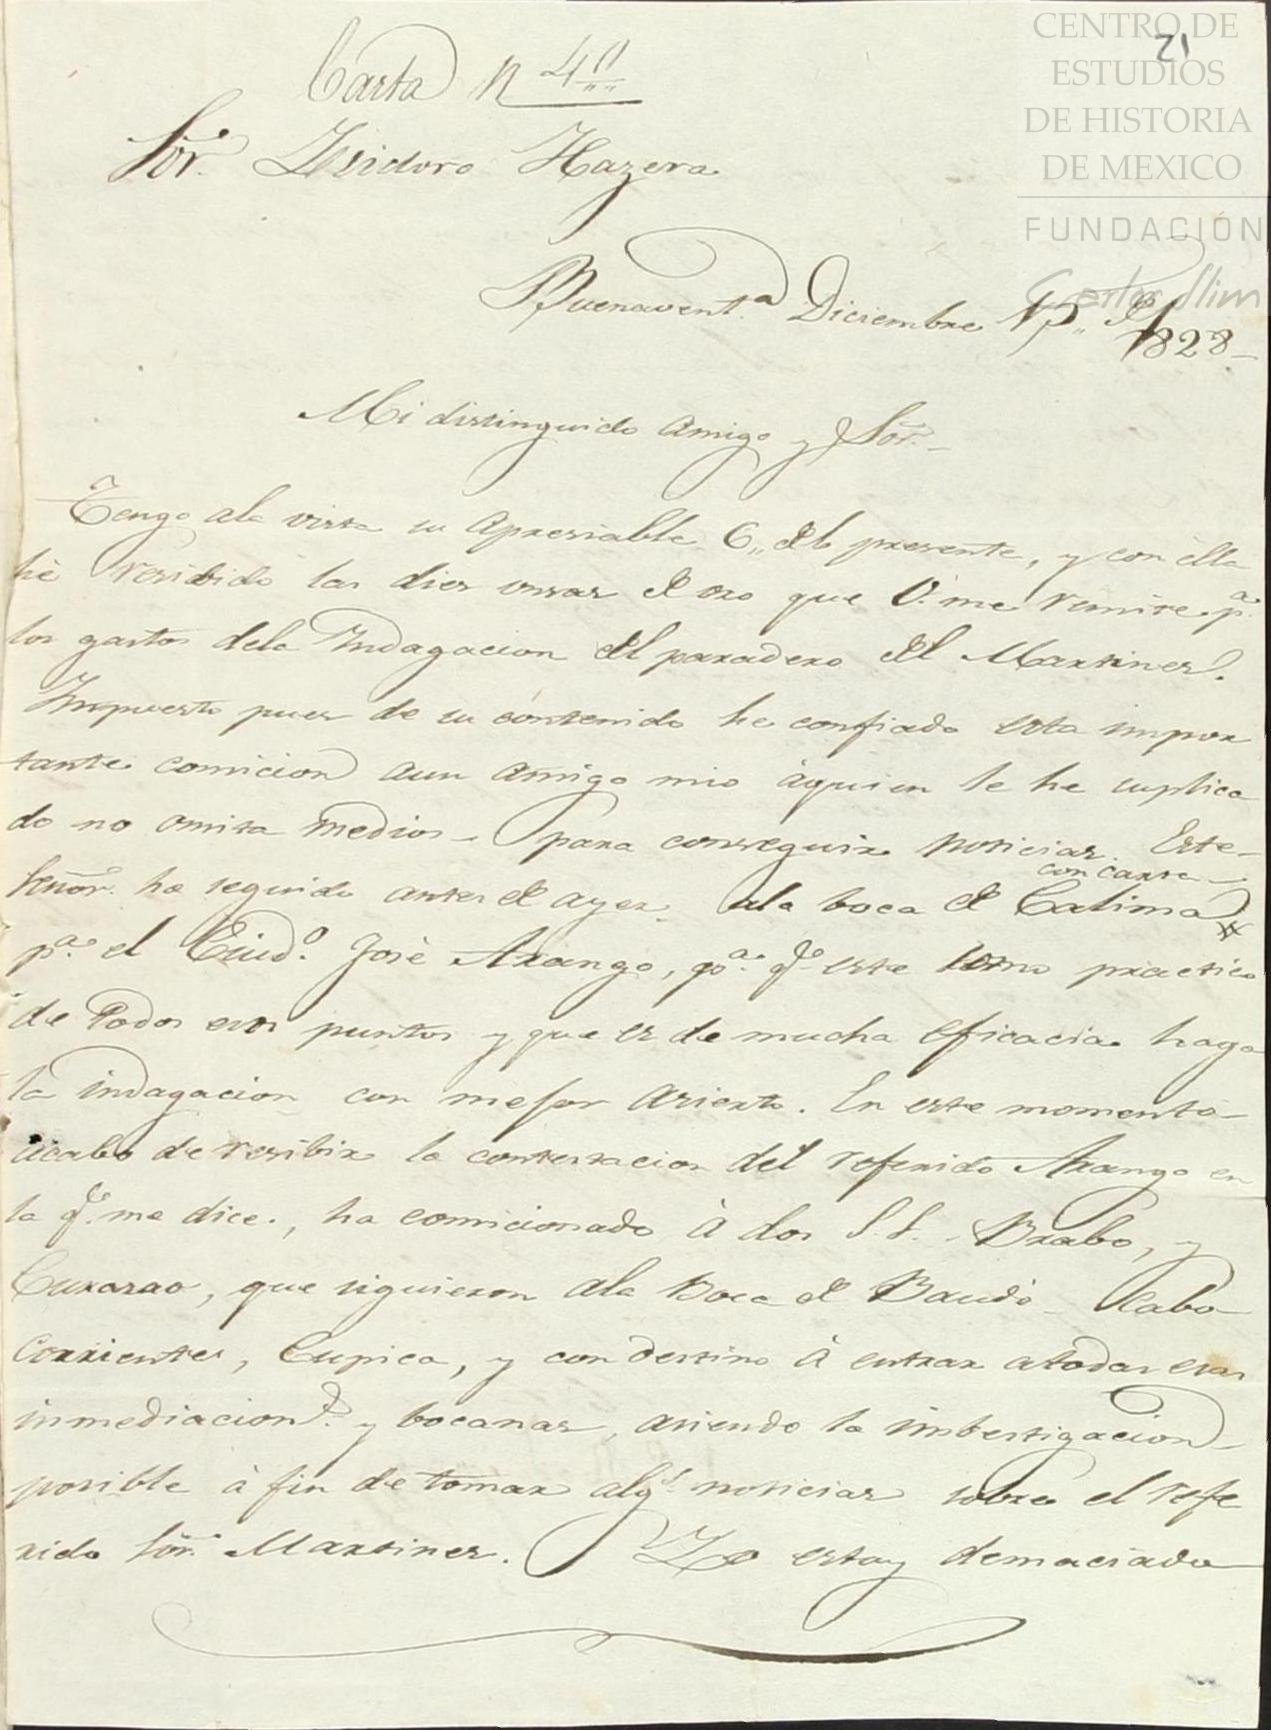 CENTRO DE
ESTUDIOS
DE HISTORIA
DE MEXICO
FUNDACIÓN
Carlos Slim
21
Carta N 4º
Sor. Ysidoro Hazera
Buenavent.a Diciembre 15,, de
1828_
Mi distinguido amigo y Sor._
Tengo ala vista su apresiable 6,, del presente, y con élla
hè resibido las dies onsas de oro que V. me remite p.a
los gastos dela Yndagacion del paradero del Martines.
Ympuesto pues de su contenido he confiado esta impor
tante comicion aun amigo mio àquien le he suplica
do no omita medios para conseguir noticias. Este_
Señor ha seguido antes de ayer ala boca de Calima
con carta
p.a el Ciud.o José Arango, p.a q.e este como practico
de todos esos puntos y que es de mucha eficacia haga
la indagacion con mejor asierto. En este momento_
acabo de resibir la contestacion del referido Arango en
la q.e me dice, ha comicionado à dos S.S. Brabo, y
Curasao, que siguieron ala Boca de Baudò Cabo_
Corrientes, Cupica, y con destino à entrar atodas esas
inmediacion.s y bocanas, asiendo la imbestigacion_
posible à fin de tomar alg.s noticias sobre el refe
rido Sor. Martines. Yo estoy demaciado